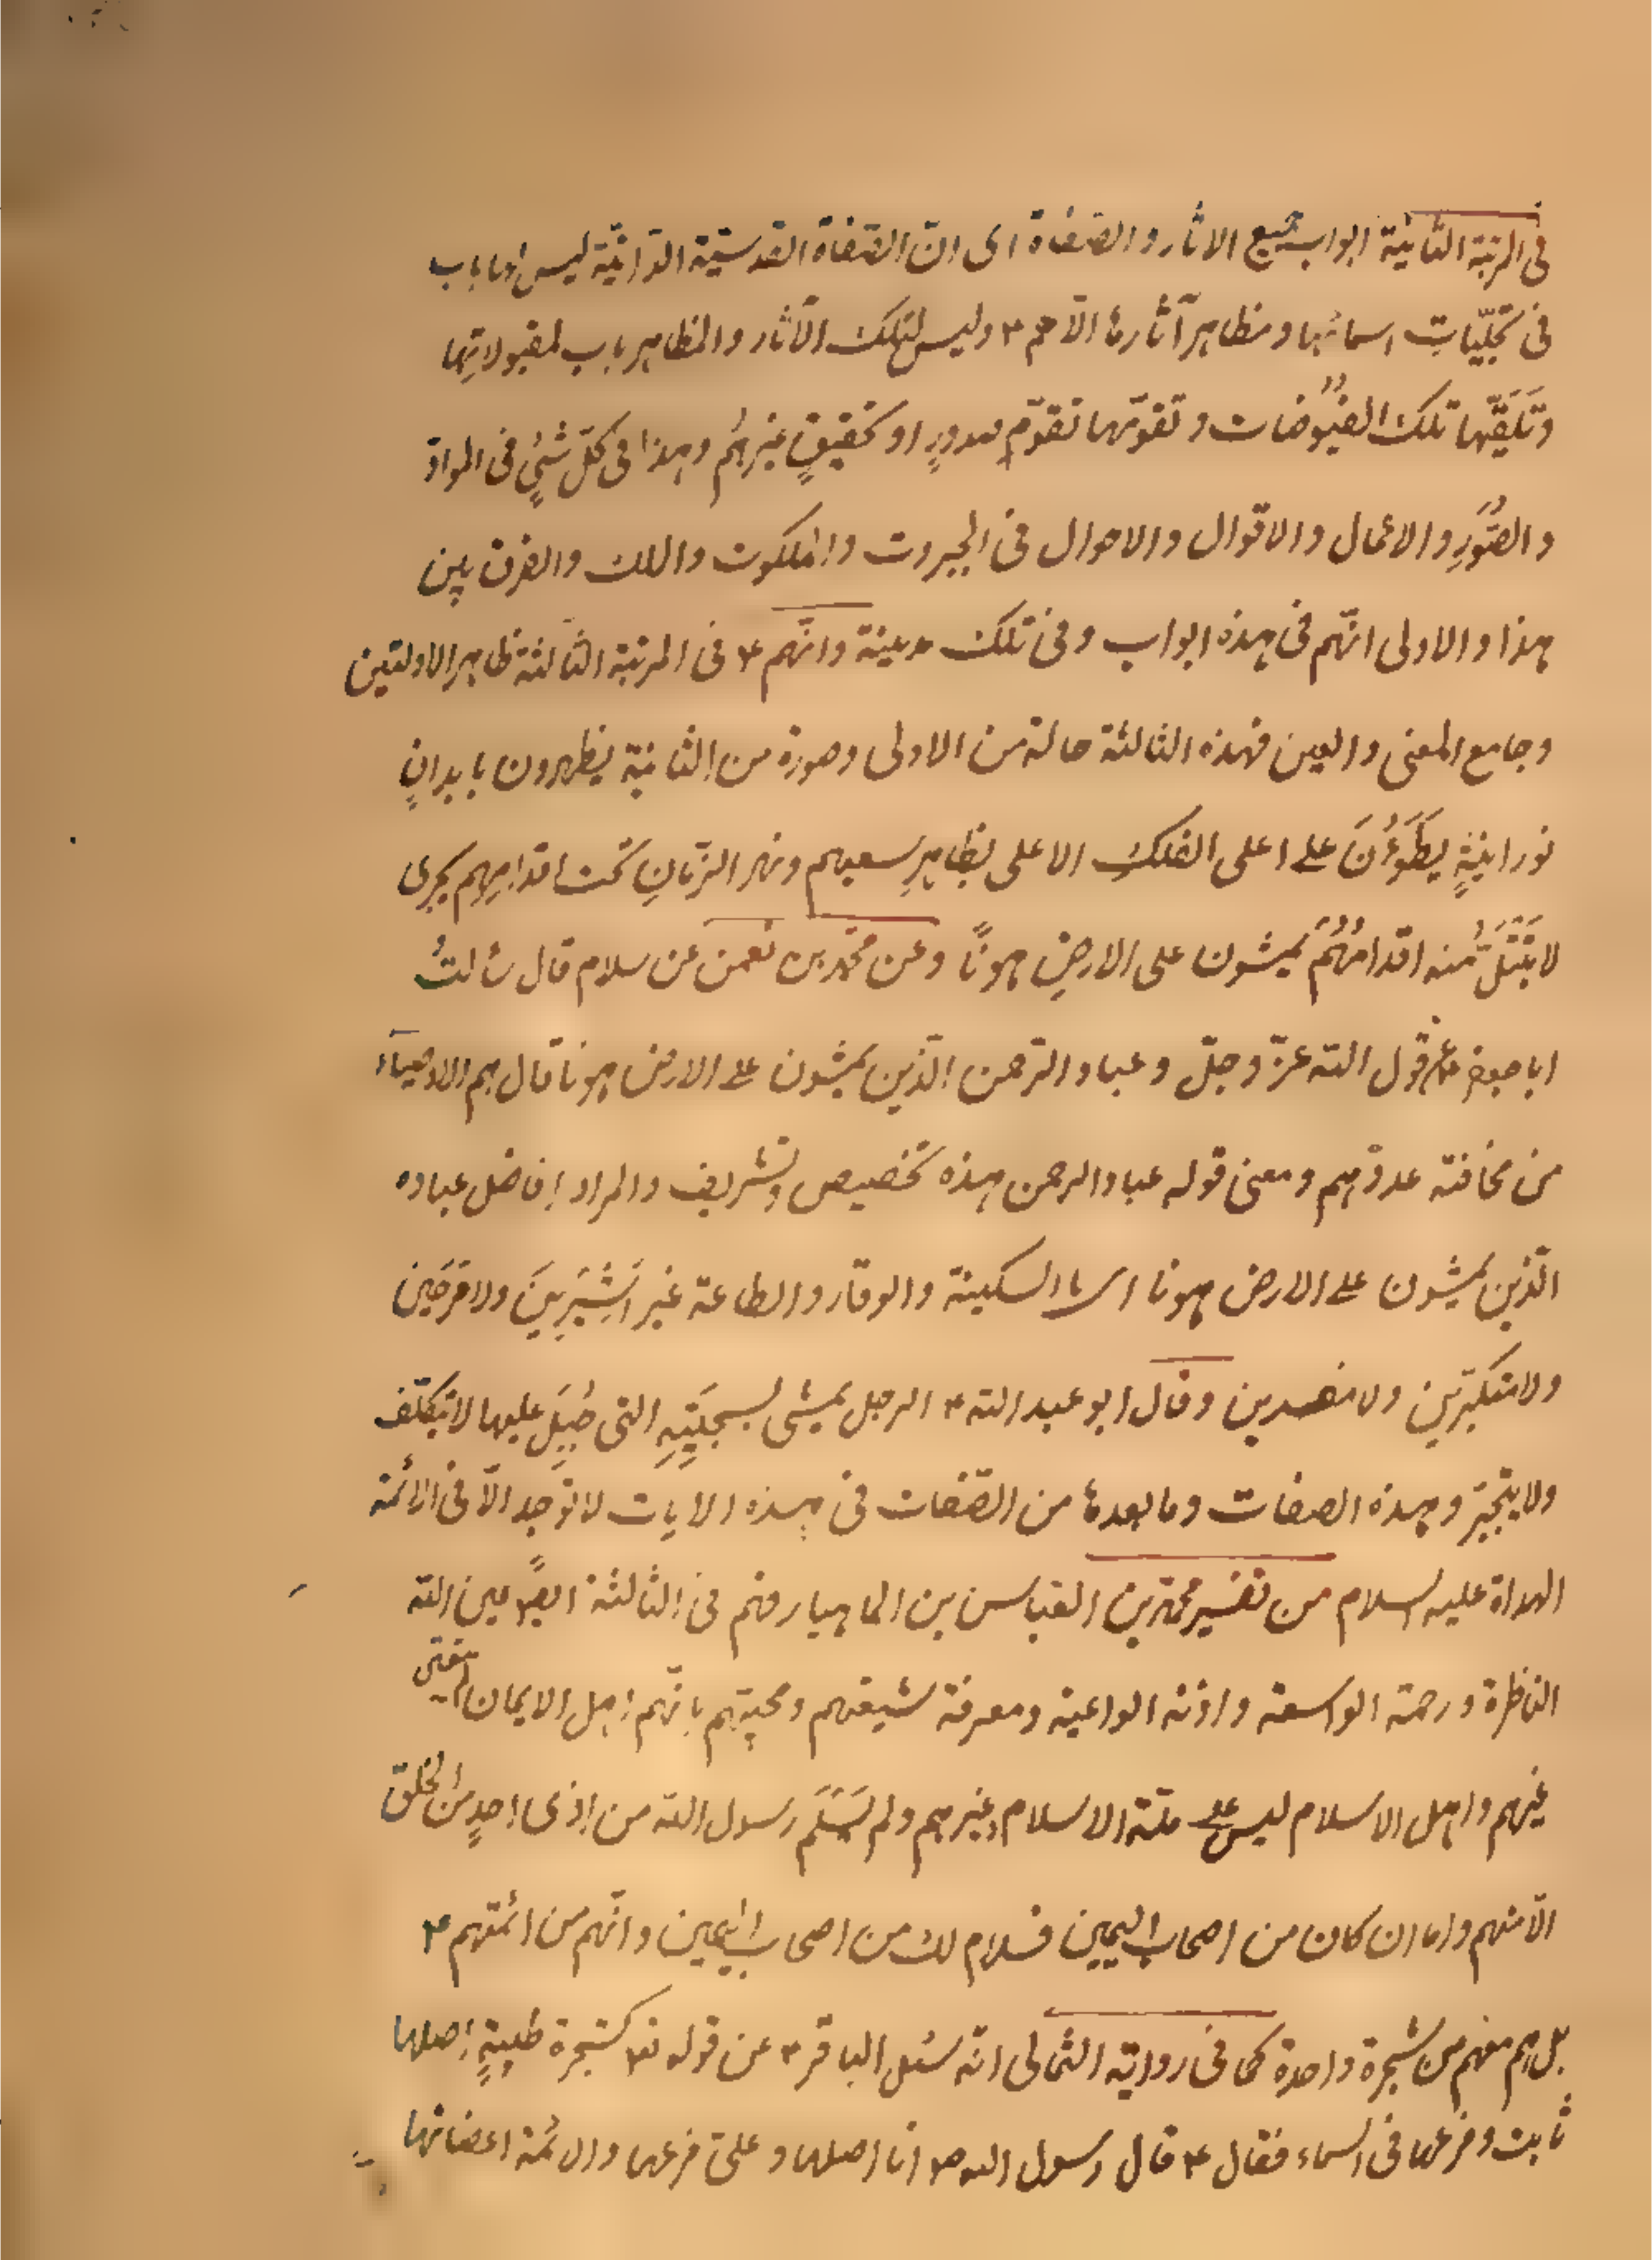 فى الرتبة الثانية ابواب جميع الاثار والصفاة اى ان الصفاة القدسيّة الذاتيّة ليس لها باب
فى تجلّيات اسمائها ومظاهر آثارها الّا هم ع وليس لتلك الآثار والمظاهر باب لمقبولاتها
وتَلَقّيها تلك الفُيُوضات وتقوّمها تقوّم صدورٍ او تحقيقٍ غيرهُم وهذا فى كلّ شئٍ فى المواد
والصُّوَرِ والاعمال والاقوال والاحوال فى الجبروت والملكوت والملك والفرق بين
هذا والاولى انّهم فى هذه ابواب وفى تلك مدينة وانّهم ع فى المرتبة الثالثة ظاهر الاولتين
وجامع المعنى والعين فهذه الثالثة حالة من الاولى وصورة من الثانية يظهرون بابدانٍ
نورانيةٍ يَطَؤُنَ على اعلى الفلك الاعلى بظاهرِ سعيهم ونهر الزّمانِ تحت اقدامِهم يجرى
لا تَبْتَلُّ منه اقدامُهُم يمشون على الارض هونًا وعن محمّد بن نعمن عن سلام قال سألتُ
ابا جعفر ع عن قول الله عزّ وجلّ وعباد الرّحمن الّذين يمشون على الارض هونا قال هم الاوصياء
من مخافتة عدوّهم ومعنى قوله عباد الرحمن هذه تخصيص وتشريف والمراد افاضل عباده
الّذين يمشون على الارض هونا اى بالسكينة والوقار والطاعة غير اَشِرِينَ ولا مَرِحين
ولا متكبّرين ولا مفسدين وقال ابو عبد الله ع الرجل يمشى بسجيّتِهِ التى جُبِلَ عليها لا يتكلّف
ولا يتجبّر وهذه الصفات وما بعدها من الصّفات فى هذه الايات لا توجد الّا فى الائمة
الهداة عليه السلام من تفسير محمّد بن العبّاس بن الماهيار وهم فى الثالثة ايضًا عين الله
الناظرة ورحمة الواسعة واذنه الواعية ومعرفة شيعتهم ومحبّتهم بانّهم اهل الايمان
غيرهم واهل الاسلام ليس على ملّة الاسلام غيرهم ولم يَسْلَم رسول الله من اذى احدٍ من الخلق
الّا منهم واما ان كان من اصحاب اليمين فسلام لك من اصحاب اليمين وانّهم من ائمّتهم ع
بل هم معهم من شجرة واحدة كما فى رواية الثمالى انّه سئل الباقر ع عن قوله تع كشجرة طيبةٍ اصلها
ثابت وفرعها فى السماء فقال ع قال رسول الله ص انا اصلها وعلىّ فرعها والائمّة اغصانها